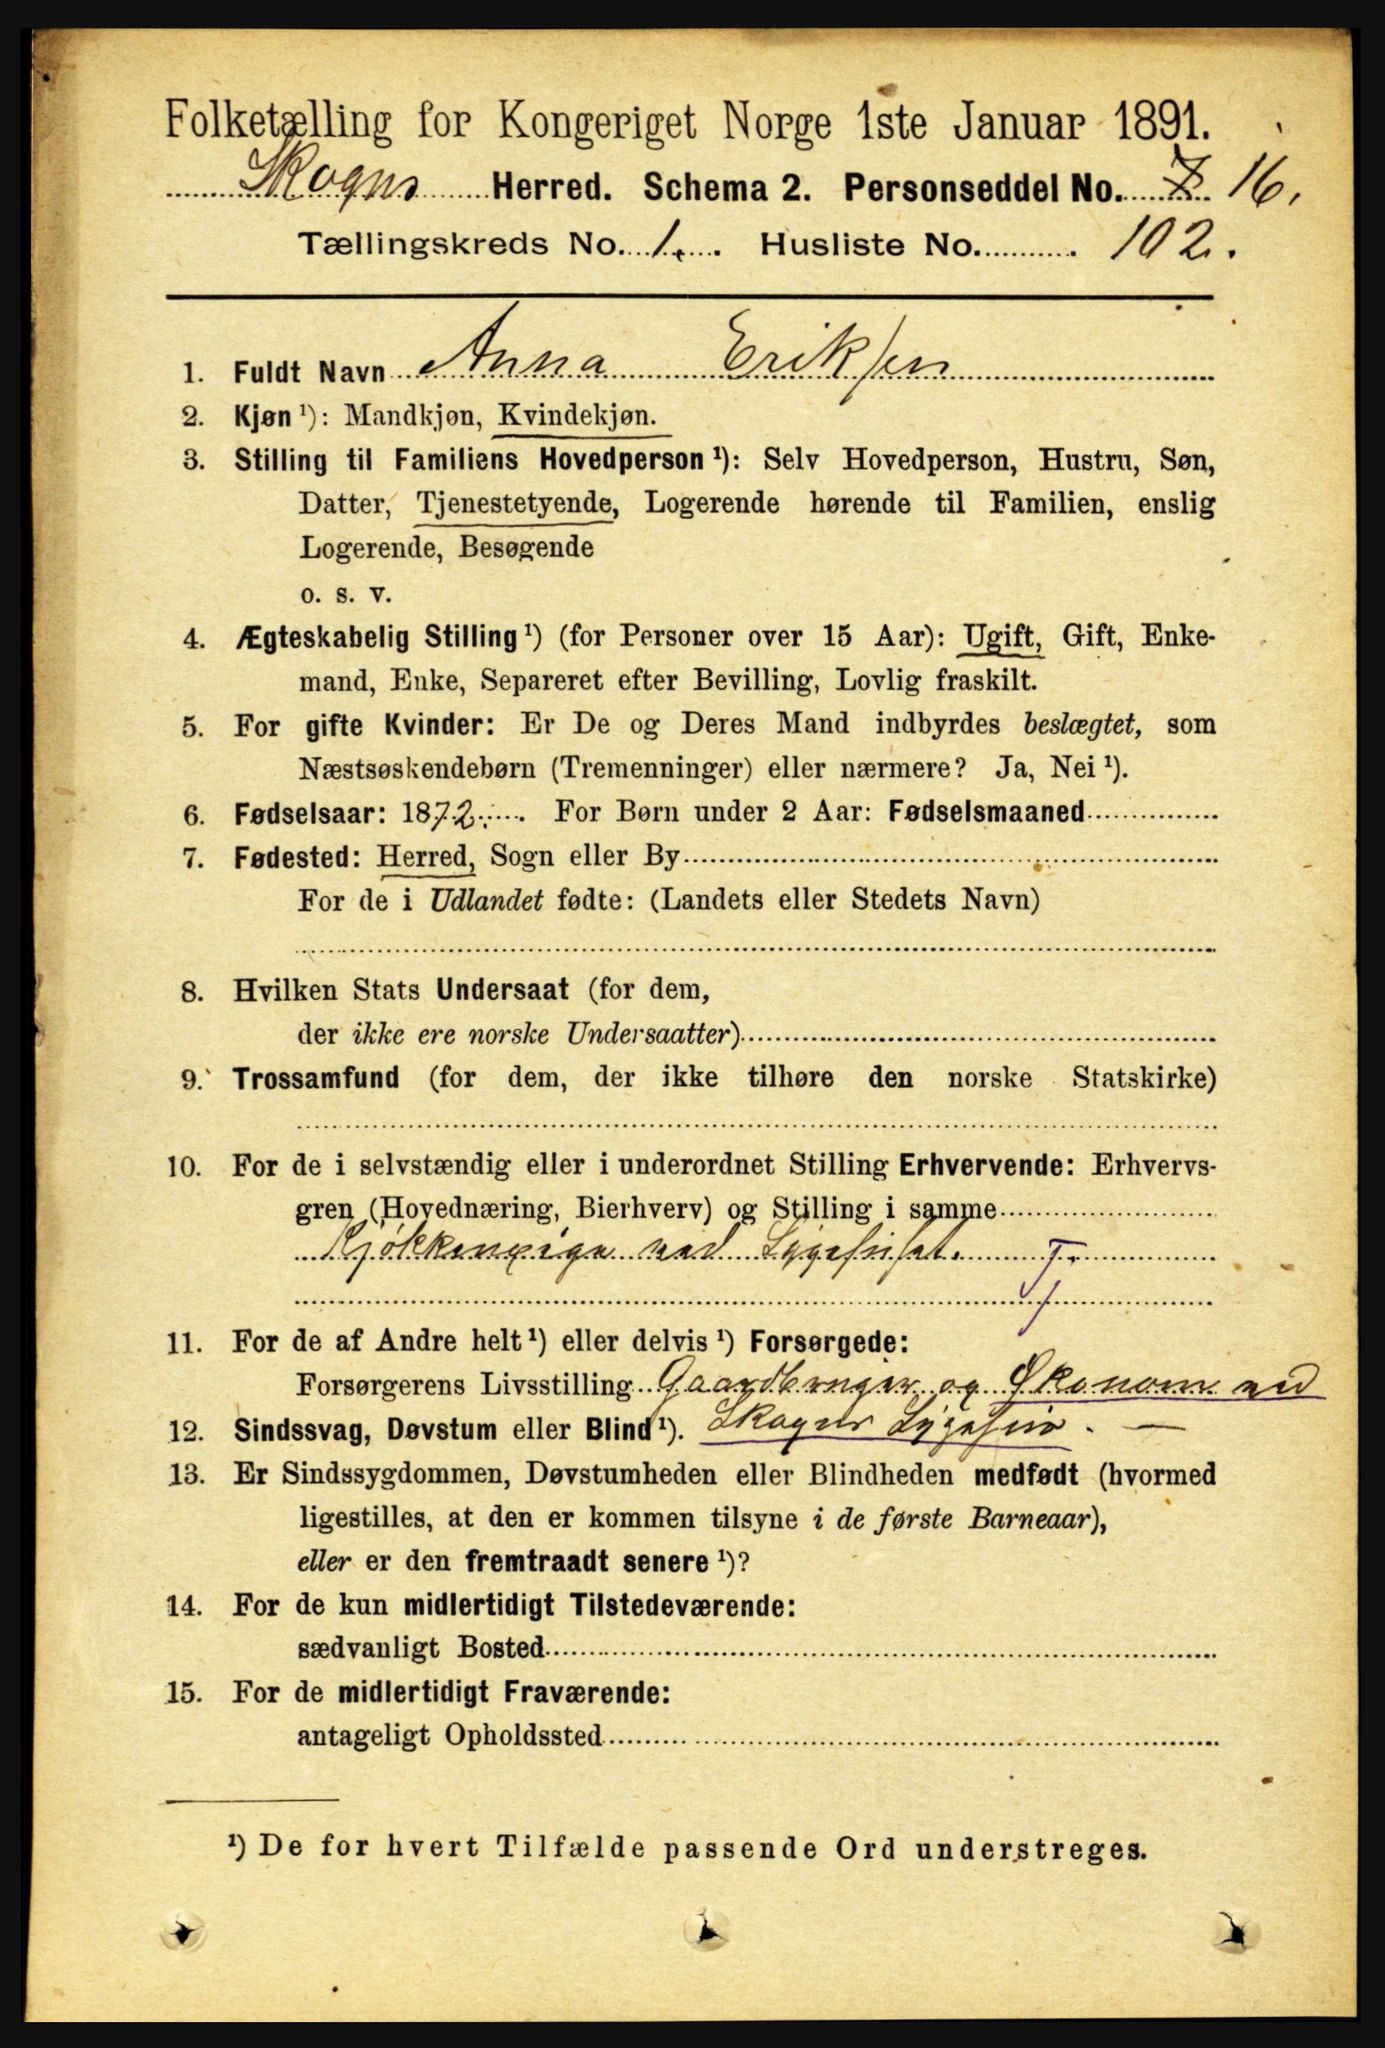 Folketælling for Kongeriget Norge 1ste Januar 1891.
Skogns Herred. Schema 2. Personseddel No. 7 16.
Tællingskreds No. 1. Husliste No. 102.
1. Fuldt Navn Anna Eriksen
2. Kjøn ¹): Mandkjøn, Kvindekjøn.
3. Stilling til Familiens Hovedperson ¹): Selv Hovedperson, Hustru, Søn,
Datter, Tjenestetyende, Logerende hørende til Familien, enslig
Logerende, Besøgende
o. s. v.
4. Ægteskabelig Stilling ¹) (for Personer over 15 Aar): Ugift, Gift, Enke-
mand, Enke, Separeret efter Bevilling, Lovlig fraskilt.
5. For gifte Kvinder: Er De og Deres Mand indbyrdes beslægtet, som
Næstsøskendebørn (Tremenninger) eller nærmere? Ja, Nei ¹).
6. Fødselsaar: 1872. For Børn under 2 Aar: Fødselsmaaned
7. Fødested: Herred, Sogn eller By
For de i Udlandet fødte: (Landets eller Stedets Navn)
8. Hvilken Stats Undersaat (for dem,
der ikke ere norske Undersaatter)
9. Trossamfund (for dem, der ikke tilhøre den norske Statskirke)
10. For de i selvstændig eller i underordnet Stilling Erhvervende: Erhvervs-
gren (Hovednæring, Bierhverv) og Stilling i samme
Kjøkkenpige ved Sygehuset. T.
11. For de af Andre helt ¹) eller delvis ¹) Forsørgede:
Forsørgerens Livsstilling Gaardbruger og Økonom ved
12. Sindssvag, Døvstum eller Blind ¹). Skogns Sygehus. —
13. Er Sindssygdommen, Døvstumheden eller Blindheden medfødt (hvormed
ligestilles, at den er kommen tilsyne i de første Barneaar),
eller er den fremtraadt senere ¹)?
14. For de kun midlertidigt Tilstedeværende:
sædvanligt Bosted
15. For de midlertidigt Fraværende:
antageligt Opholdssted
¹) De for hvert Tilfælde passende Ord understreges.